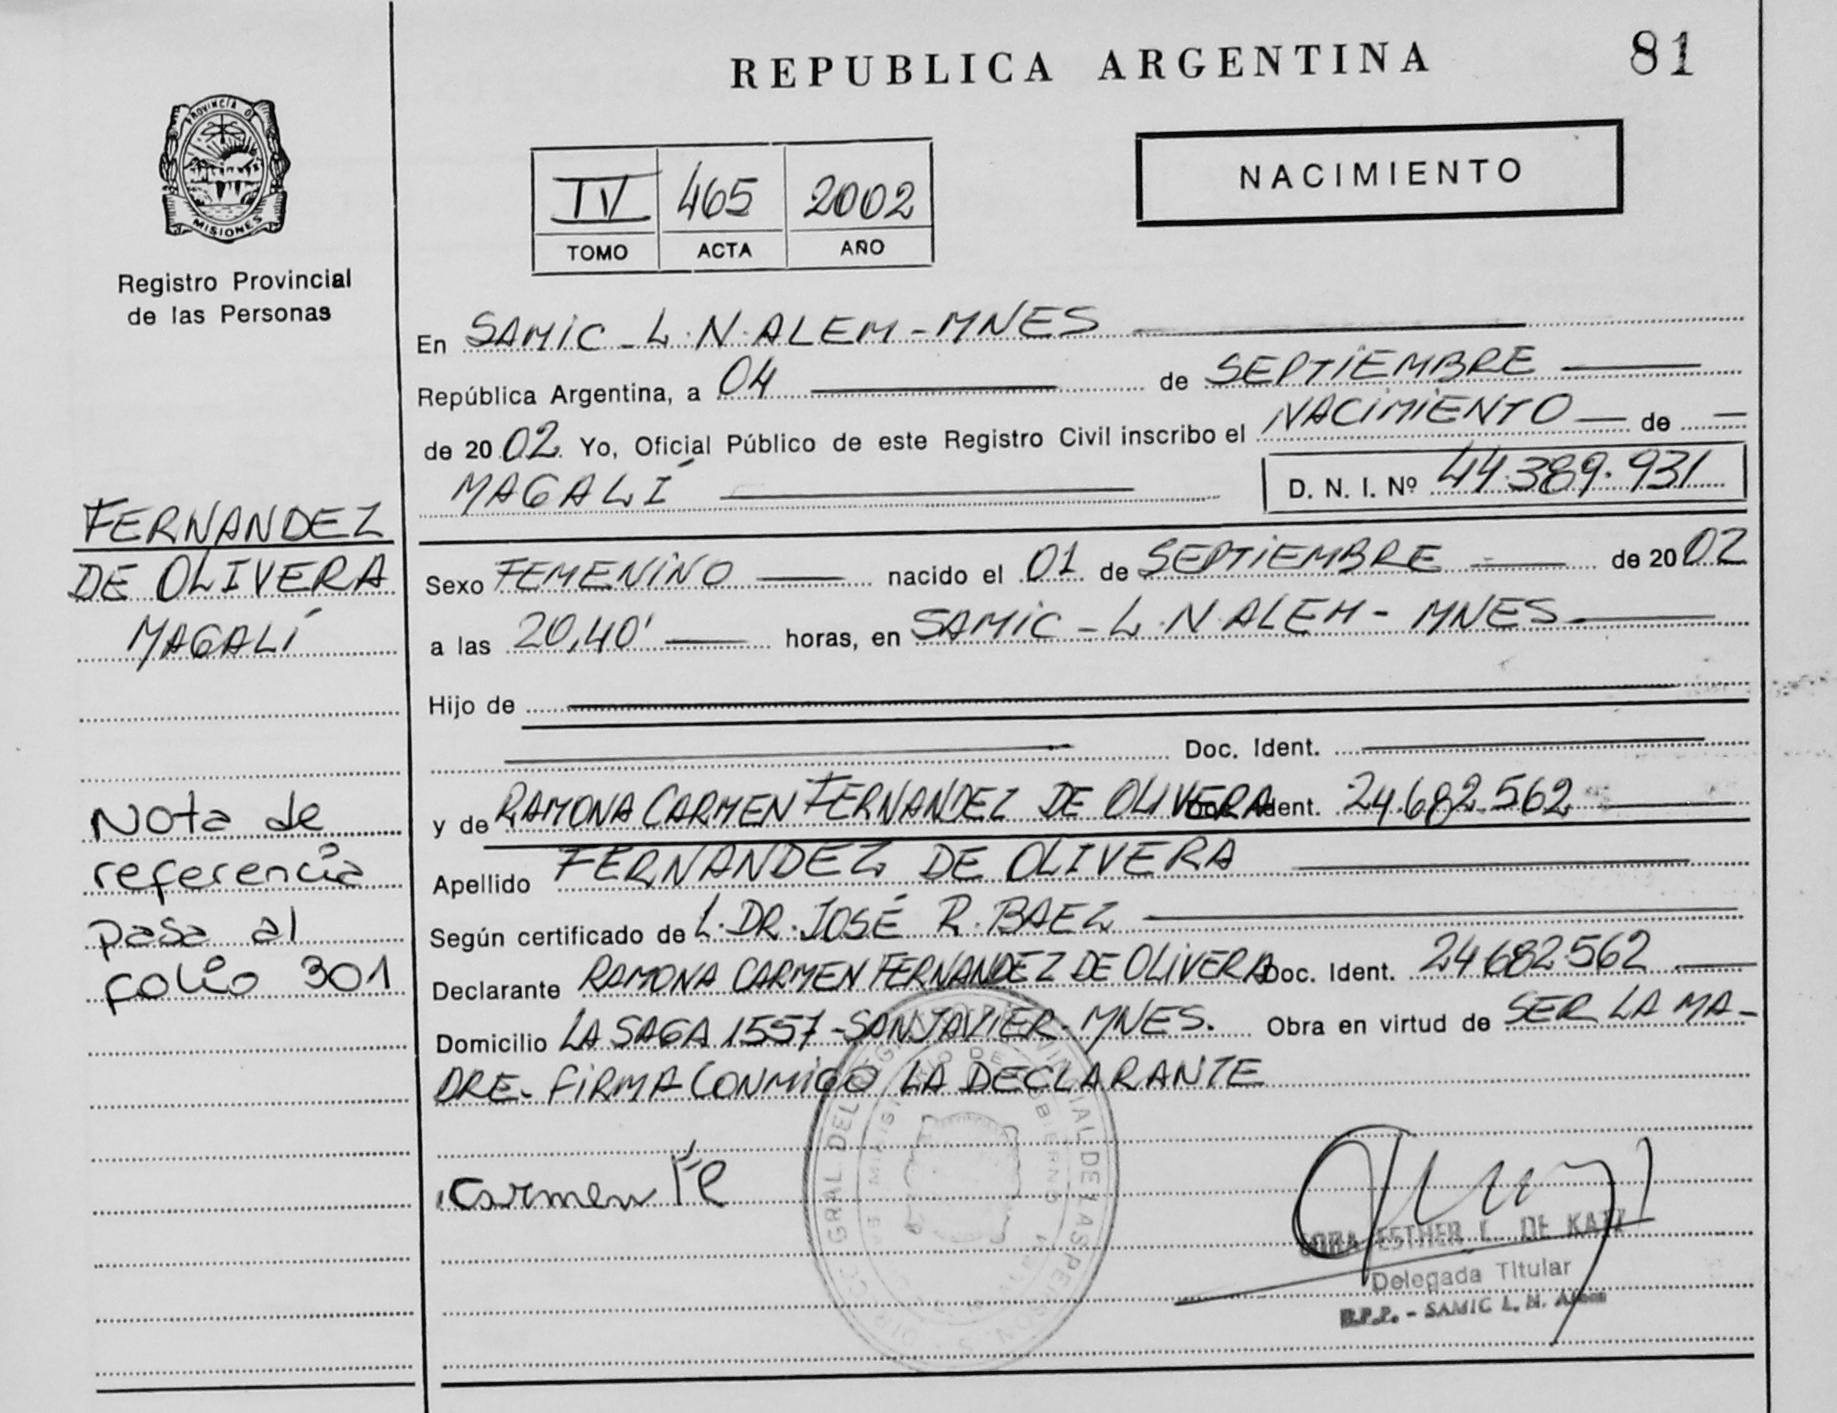 REPUBLICA ARGENTINA
81
PROVINCIA D
MISIONES
Registro Provincial
de las Personas
IV 465 2002
TOMO ACTA AÑO
NACIMIENTO
En SAMIC - L. N. ALEM - MNES
República Argentina, a 04 de SEPTIEMBRE
de 2002 Yo, Oficial Público de este Registro Civil inscribo el NACIMIENTO de
MAGALÍ D. N. I. Nº 44.389.931
FERNANDEZ
DE OLIVERA
MAGALÍ
Sexo FEMENINO nacido el 01 de SEPTIEMBRE de 2002
a las 20,40' horas, en SAMIC - L. N. ALEM - MNES
Hijo de
Doc. Ident.
y de RAMONA CARMEN FERNANDEZ DE OLIVERA Doc. Ident. 24.682.562
Apellido FERNANDEZ DE OLIVERA
Según certificado de L. DR. JOSÉ R. BAEZ
Declarante RAMONA CARMEN FERNANDEZ DE OLIVERA Doc. Ident. 24682562
Domicilio LA SAGA 1557 - SAN JAVIER - MNES. Obra en virtud de SER LA MA-
DRE. FIRMA CONMIGO LA DECLARANTE
Nota de
referencia
pasa al
folio 301
Carmen Fe
ESTHER L. DE KATZ
Delegada Titular
R.P.P. - SAMIC L. N. Alem